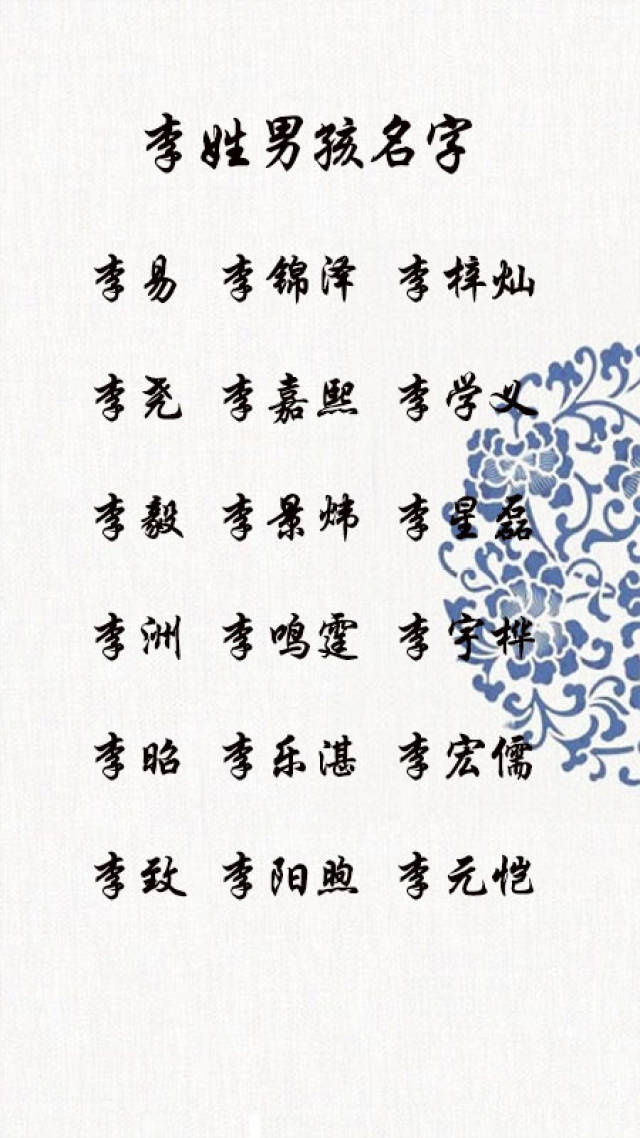 李姓男孩名字
李易 李锦泽 李梓灿
李尧 李嘉熙 李学义
李毅 李景炜 李星磊
李洲 李鸣霆 李宇桦
李昭 李乐湛 李宏儒
李致 李阳煦 李元恺